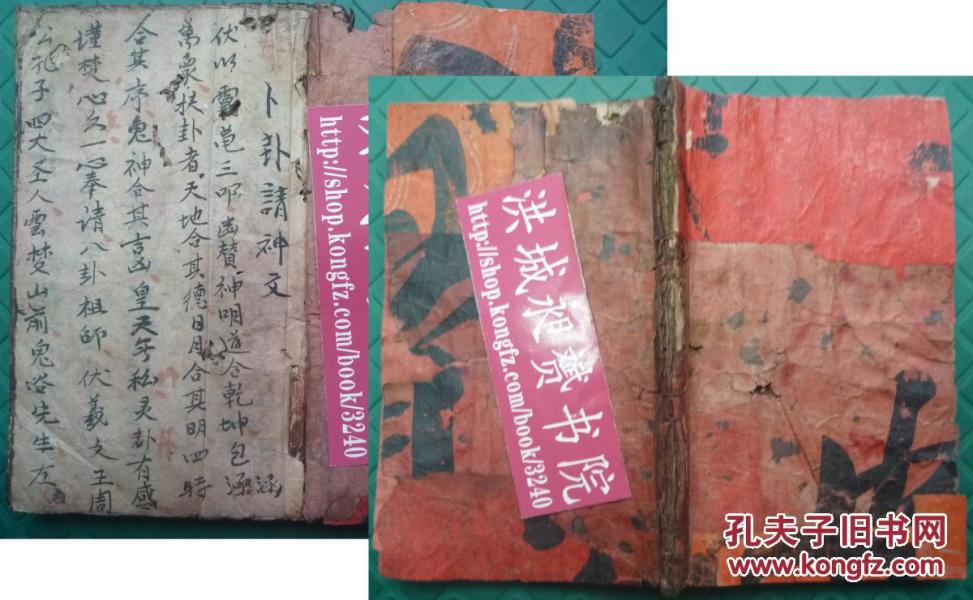 卜卦請神文
伏以靈蓍三叩幽贊神明道合乾坤包涵
萬象扶卦者天地合其德日月合其明四時
合其序鬼神合其吉凶皇天無私灵卦有感
謹焚心久一心奉请八卦祖師 伏羲文王周
公孔子四大圣人雲梦山前鬼谷先生左
http://shop.kongfz.com/book/3240
洪城昶赟书院
http://shop.kongfz.com/book/3240
孔夫子旧书网
www.kongfz.com